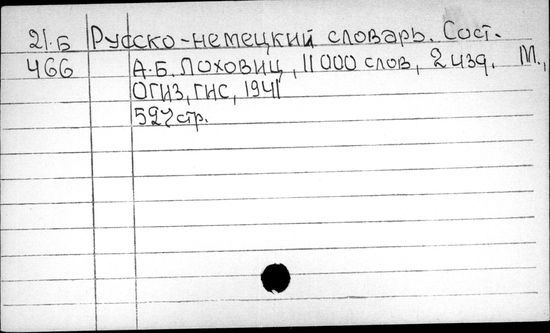 21.Б Русско-немецкий словарь. Сост.
466 А.Б. Лоховиц, 11000 слов, 2 изд. М.,
ОГИЗ, ГИС, 1941
527 стр.